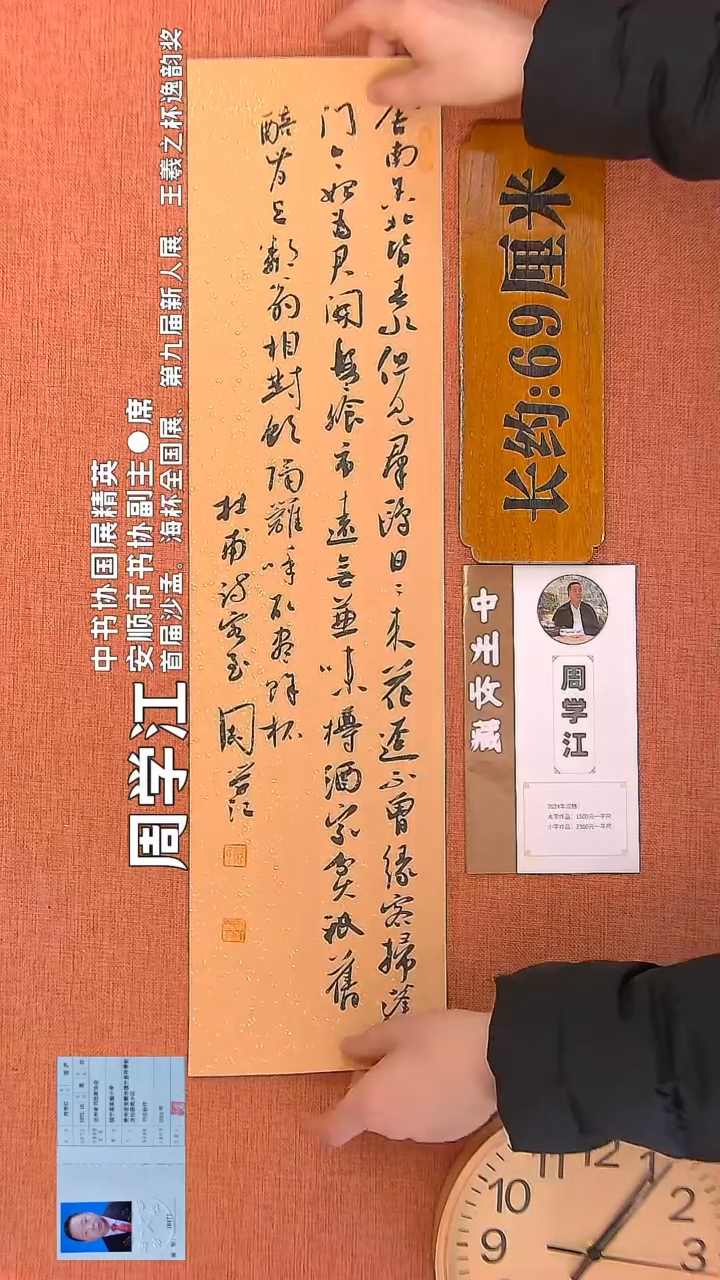 周学江
中书协国展精英
安顺市书协副主●席
首届沙孟。海杯全国展、第九届新人展、王羲之杯逸韵奖
舍南舍北皆春水但見羣鷗日〻来花迳不曾缘客掃蓬
门今始為君開盤飧市遠無兼味樽酒家貧祇舊
醅肯与鄰翁相對飲隔籬呼取盡餘杯
杜甫诗客至 周学江
长约:69厘米
中米收藏
周学江
2024年规格:
大字作品: 1500元一平尺
小字作品: 2300元一平尺
11 12 1
10 2
9 3